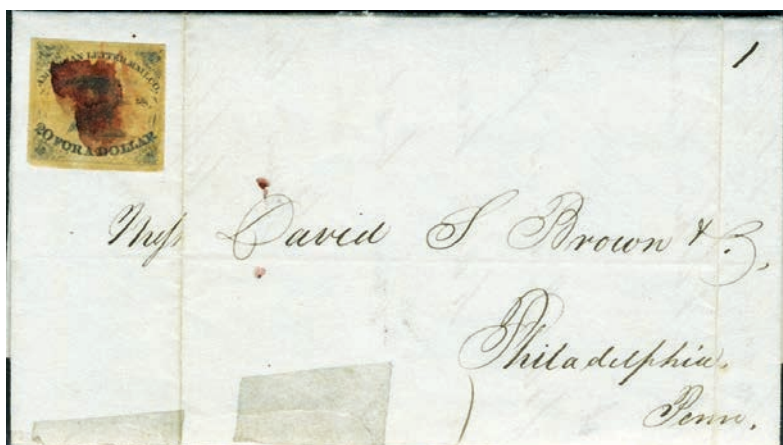 AMERICAN LETTER MAIL CO.
20 FOR A DOLLAR
1
Mess David S Brown & Co,
Philadelphia.
Penn.